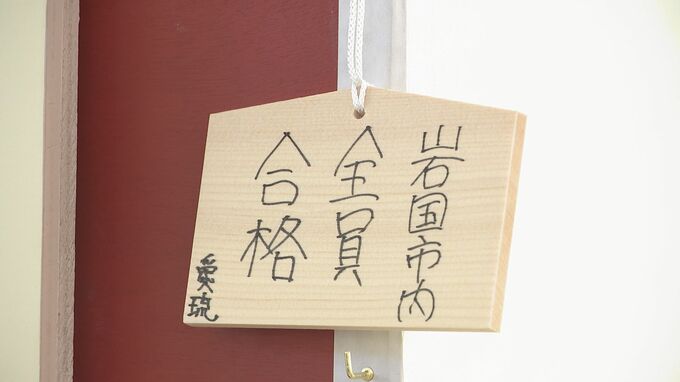 岩国市内
全員
合格
愛琉